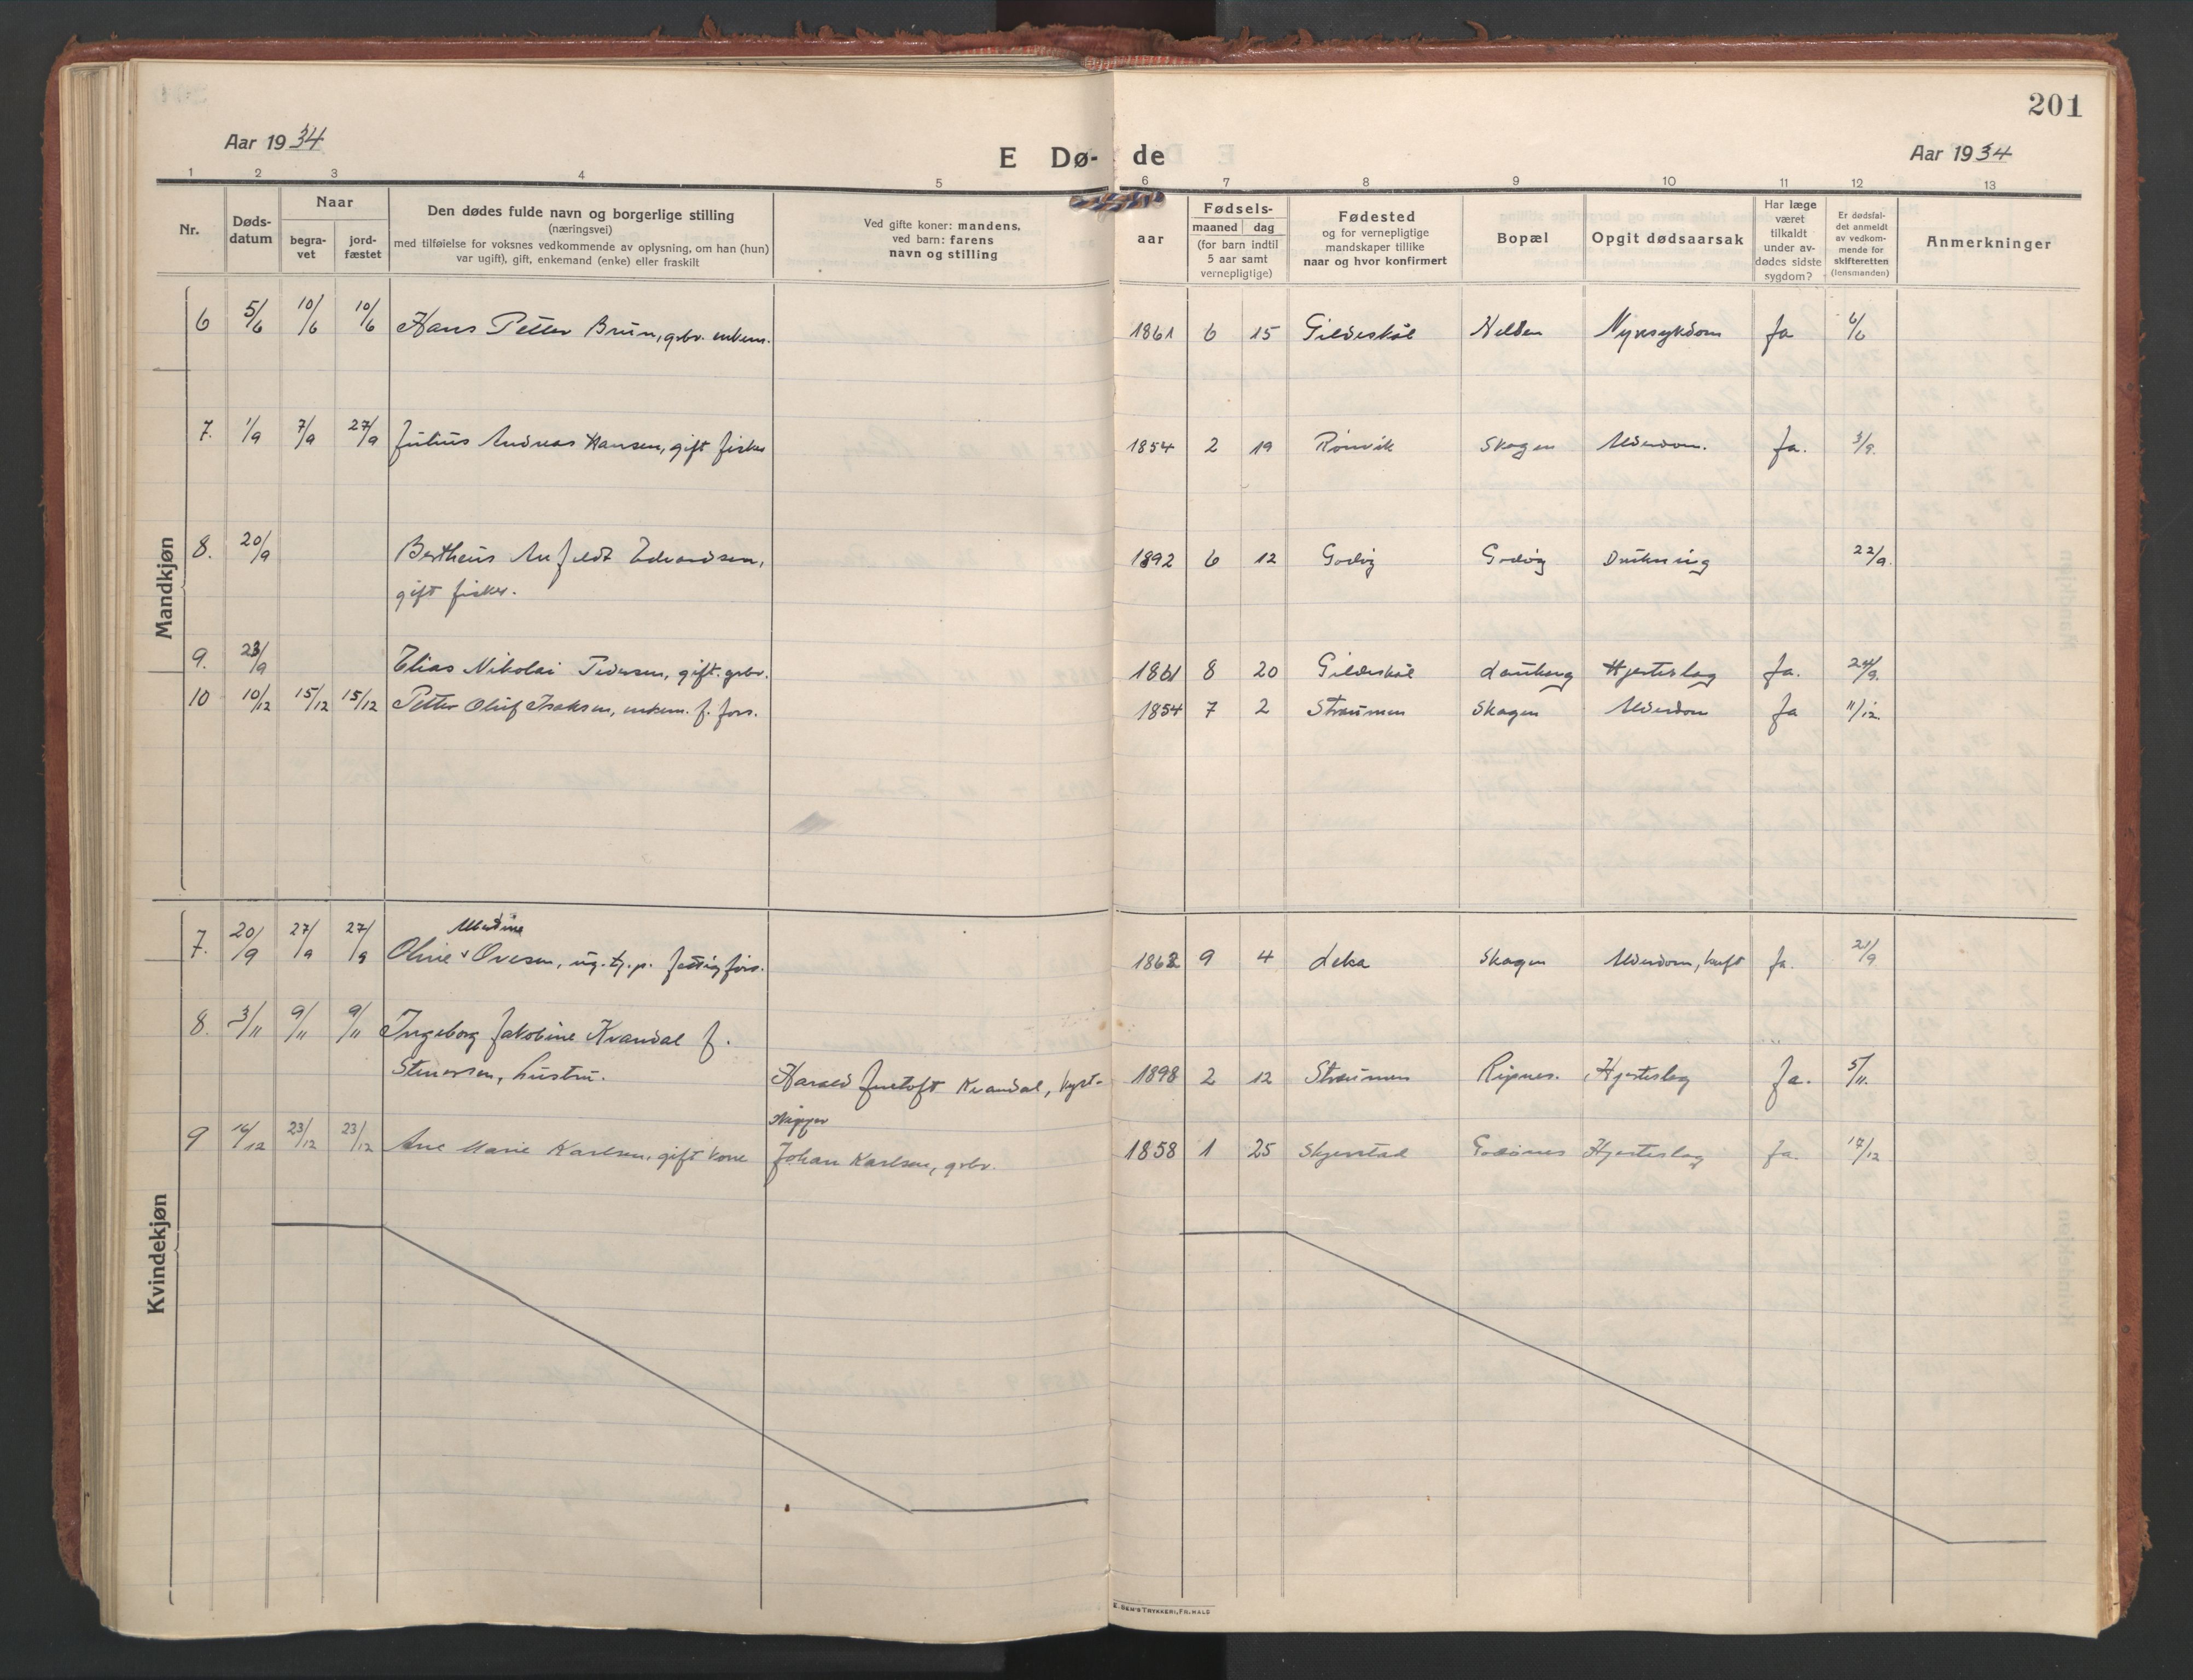 201
Aar 1934
E Dø-
de
Aar 1934
1 2 3 4 5 6 7 8 9 10 11 12 13
Nr.
Døds-
datum
Naar
begra-
vet
jord-
fæstet
Den dødes fulde navn og borgerlige stilling
(næringsvei)
med tilføielse for voksnes vedkommende av oplysning, om han (hun)
var ugift), gift, enkemand (enke) eller fraskilt
Ved gifte koner: mandens,
ved barn: farens
navn og stilling
aar
Fødsels-
maaned dag
(for barn indtil
5 aar samt
vernepligtige)
Fødested
og for vernepligtige
mandskaper tillike
naar og hvor konfirmert
Bopæl
Opgit dødsaarsak
Har læge
været
tilkaldt
under av-
dødes sidste
sygdom?
Er dødsfal-
det anmeldt
av vedkom-
mende for
skifteretten
(lensmanden)
Anmerkninger
Mandkjøn
6 5/6 10/6 10/6 Hans Petter Brun, gbr. enkem. 1861 6 15 Gildeskål Nyresykdom Ja 6/6
7. 1/9 7/9 27/9 Julius Andreas Hansen, gift fisker 1854 2 19 Rønvik Skagen Alderdom. Ja. 3/9.
8. 20/9 Bertheus Edvardsen, 1892 6 12 Godøy Godøy Drukning 22/9.
gift fisker.
9. 23/9 Elias Nikolai Pedersen, gift. gbr. 1861 8 20 Gildeskål Hjerteslag Ja. 24/9.
10 10/12 15/12 15/12 Petter Oluf Isaksen, enkem. f. fors. 1854 7 2 Straumen Skagen Alderdom Ja 11/12.
Kvindekjøn
Albertine
7. 20/9 27/9 27/9 Oline Ovesen, ug. tj. p. fattigfors. 1862 9 4 Leka Skagen Alderdom, kreft Ja. 21/9
8. 3/11 9/11 9/11 Ingeborg Jakobine Kvandal f.
Stenersen, hustru. Harald Kvandal, kyst- 1898 2 12 Straumen Ripnes. Hjerteslag Ja. 5/11.
skipper
9 14/12 23/12 23/12 Ane Marie Karlsen, gift kone Johan Karlsen, gbr. 1858 1 25 Skjerstad Godønes Hjerteslag Ja. 17/12
E. SEM'S TRYKKERI, FR.HALD